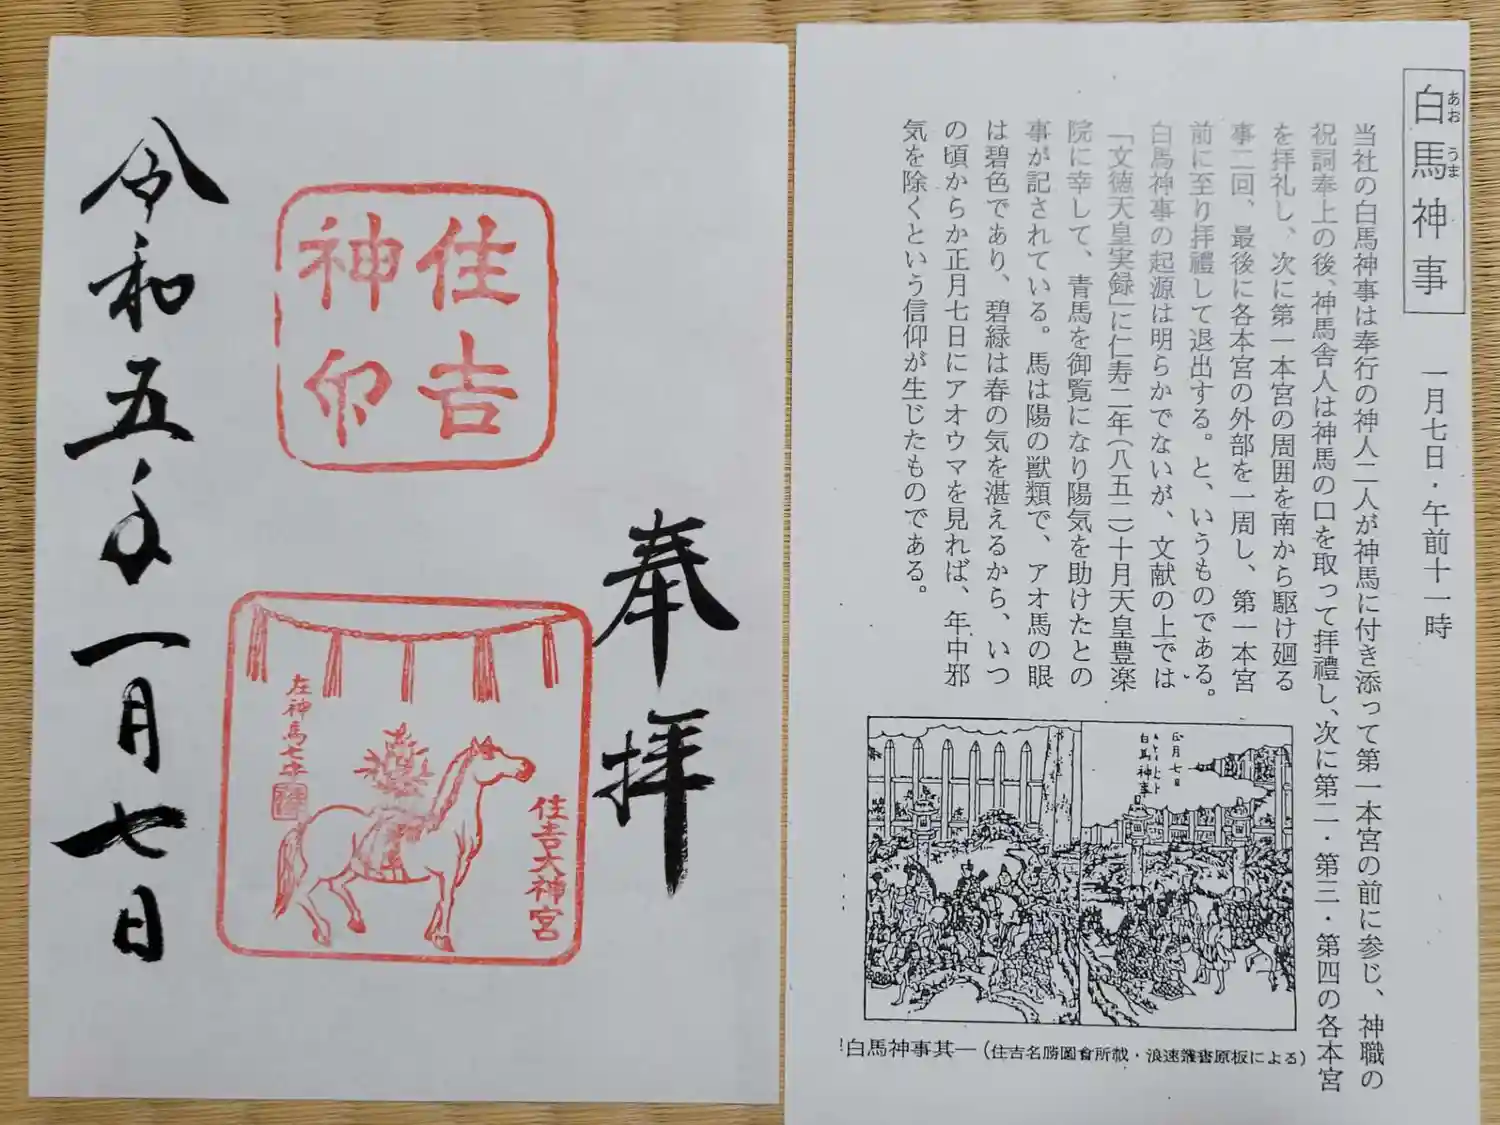 奉拝
住吉
神印
住吉大神宮
左神馬七平
令和五年一月七日
白馬神事
あおうま
一月七日・午前十一時
当社の白馬神事は奉行の神人二人が神馬に付き添って第一本宮の前に参じ、神職の
祝詞奉上の後、神馬舎人は神馬の口を取って拝禮し、次に第二・第三・第四の各本宮
を拝礼し、次に第一本宮の周囲を南から駆け廻る
事二回、最後に各本宮の外部を一周し、第一本宮
前に至り拝禮して退出する。と、いうものである。
白馬神事の起源は明らかでないが、文献の上では
「文徳天皇実録」に仁寿二年(八五二)十月天皇豊楽
院に幸して、青馬を御覧になり陽気を助けたとの
事が記されている。馬は陽の獣類で、アオ馬の眼
は碧色であり、碧緑は春の気を湛えるから、いつ
の頃からか正月七日にアオウマを見れば、年中邪
気を除くという信仰が生じたものである。
正月七日
白馬神事
白馬神事其一(住吉名勝圖會所載・浪速叢書原板による)